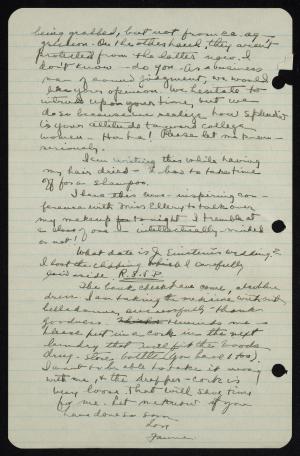 being grabbed, but not from ca. ag-
gression. On the other hand, they aren't
protected from the latter now. I
don't know - do you. As a business
man of sound judgment, we would
like your opinion. We hesitate to
intrude upon your time, but we
do so because we realize how splendid
is your attitude toward college
women - Ha ha! Please let me know -
seriously.
I am writing this while having
my hair dried - I has to take time
off for a shampoo.
I have this awe-inspiring con-
ference with Miss Ellery to talk over
my makeup to-night. I tremble at
a close of one intellectually-minded
as not!
What date is J Einstein's wedding?
I lost the clipping I carefully
laid aside. R.S.V.P.
The bank check has come, also the
dress. I am taking the medicine with
belladonna, successfully - thank
goodness. Reminds me -
please put in a cork in the next
laundry that will fit the Woods
drug-store bottle (you have 1 too).
I want to be able to take it away
with me, & the dropper-cork is
very loose. That will save time
for me. Let me know if you
have done so soon.
Love